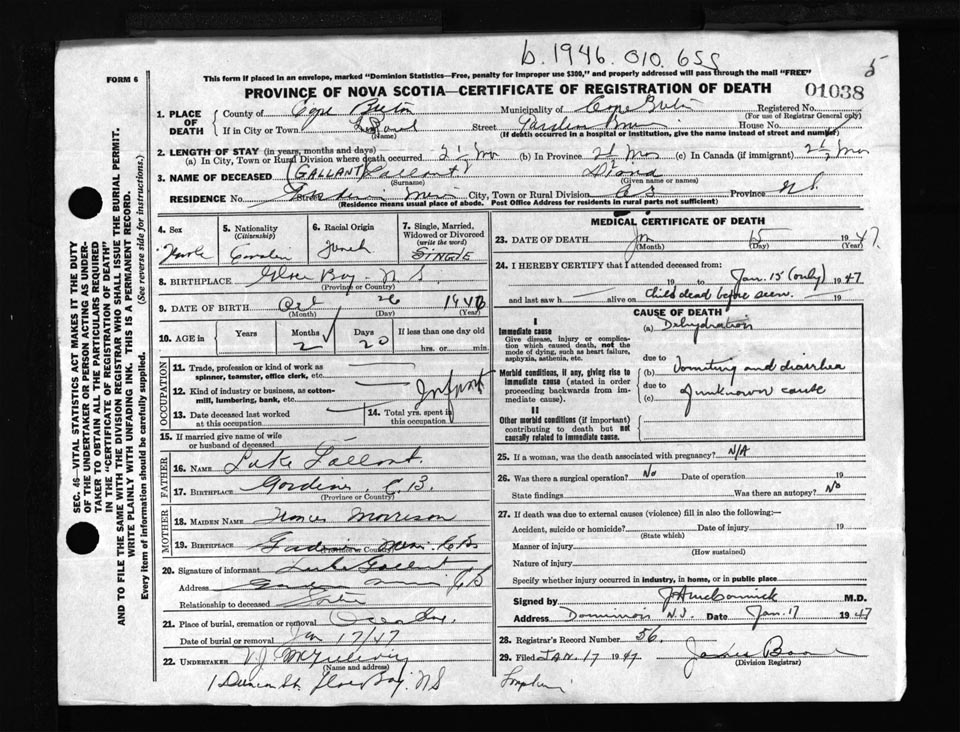 b. 1946. 010. 655
5
FORM 6
This form if placed in an envelope, marked "Dominion Statistics—Free, penalty for improper use $300," and properly addressed will pass through the mail "FREE"
PROVINCE OF NOVA SCOTIA—CERTIFICATE OF REGISTRATION OF DEATH 01038
SEC. 46—VITAL STATISTICS ACT MAKES IT THE DUTY
OF THE UNDERTAKER OR PERSON ACTING AS UNDER-
TAKER TO OBTAIN ALL THE PARTICULARS REQUIRED
IN THE "CERTIFICATE OF REGISTRATION OF DEATH"
AND TO FILE THE SAME WITH THE DIVISION REGISTRAR WHO SHALL ISSUE THE BURIAL PERMIT.
WRITE PLAINLY WITH UNFADING INK. THIS IS A PERMANENT RECORD.
Every item of information should be carefully supplied. (See reverse side for instructions.)
1. PLACE OF DEATH County of Cape Breton Municipality of Cape Breton Registered No.
(For use of Registrar General only)
If in City or Town (Name) Street House No.
(If death occurred in a hospital or institution, give the name instead of street and number)
2. LENGTH OF STAY (in years, months and days)
(a) In City, Town or Rural Division where death occurred 2 1/2 Mo (b) In Province 2 1/2 Mos (c) In Canada (if immigrant) 2 1/2 Mos
3. NAME OF DECEASED (GALLANT) Gallant (Surname) Diana (Given name or names)
RESIDENCE No. Street City, Town or Rural Division C B Province N S.
(Residence means usual place of abode. Post Office Address for residents in rural parts not sufficient)
4. Sex
5. Nationality (Citizenship) Canadian
6. Racial Origin French
7. Single, Married, Widowed or Divorced (write the word) SINGLE
8. BIRTHPLACE Glace Bay - N S.
(Province or Country)
9. DATE OF BIRTH Oct (Month) 26 (Day) 1946 (Year)
10. AGE in Years Months 2 Days 20 If less than one day old hrs. or min.
OCCUPATION
11. Trade, profession or kind of work as spinner, teamster, office clerk, etc.
12. Kind of industry or business, as cotton-mill, lumbering, bank, etc. Infant
13. Date deceased last worked at this occupation
14. Total yrs. spent in this occupation
15. If married give name of wife or husband of deceased
FATHER
16. NAME Luke Gallant.
17. BIRTHPLACE C. B.
(Province or Country)
MOTHER
18. MAIDEN NAME Frances Morrison
19. BIRTHPLACE
(Province or Country)
20. Signature of informant Luke Gallant
Address C B
Relationship to deceased
21. Place of burial, cremation or removal
Date of burial or removal Jan 17/47
22. UNDERTAKER V J
(Name and address)
1 Duncan St. Glace Bay. N S
MEDICAL CERTIFICATE OF DEATH
23. DATE OF DEATH Jan (Month) 15 (Day) 1947. (Year)
24. I HEREBY CERTIFY that I attended deceased from:
19 to Jan. 15 (only) 1947
and last saw h alive on Child dead before seen. 19
CAUSE OF DEATH
I
Immediate cause
Give disease, injury or complication which caused death, not the mode of dying, such as heart failure, asphyxia, asthenia, etc.
(a) Dehydration
due to
Morbid conditions, if any, giving rise to immediate cause (stated in order proceeding backwards from immediate cause).
(b) Vomiting and diarrhea
due to
(c) of unknown cause
II
Other morbid conditions (if important) contributing to death but not causally related to immediate cause.
25. If a woman, was the death associated with pregnancy? N/A
26. Was there a surgical operation? No Date of operation 19
State findings Was there an autopsy? No
27. If death was due to external causes (violence) fill in also the following:—
Accident, suicide or homicide? Date of injury 19
(State which)
Manner of injury
(How sustained)
Nature of injury
Specify whether injury occurred in industry, in home, or in public place
Signed by M.D.
Address Dominion N.S. Date Jan. 17 1947
28. Registrar's Record Number 56.
29. Filed JAN. 17 1947
(Division Registrar)